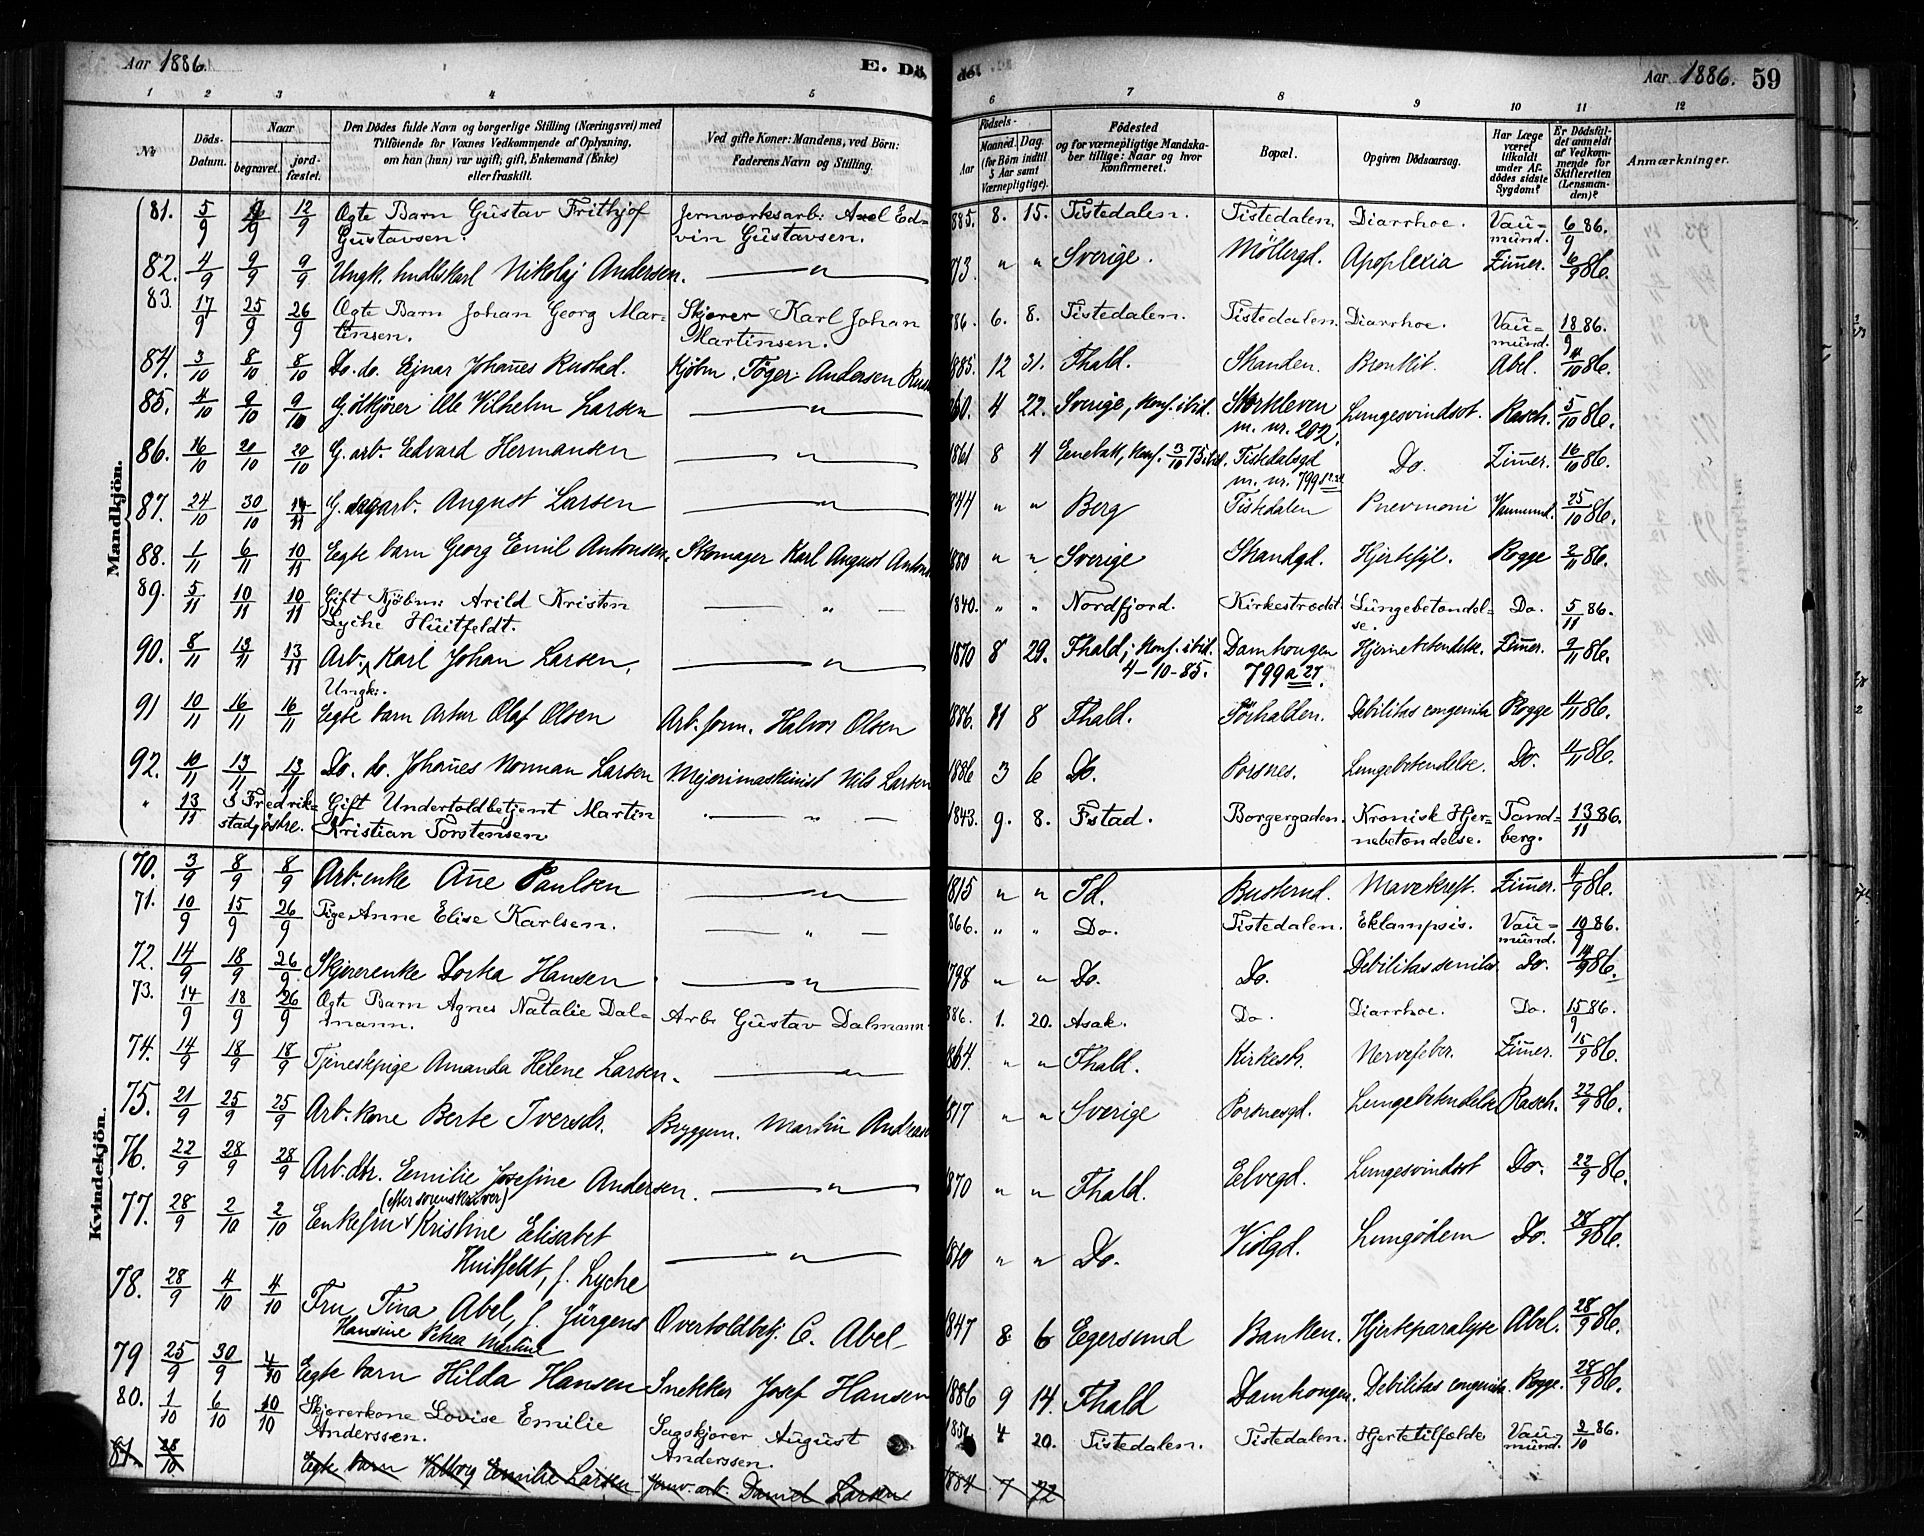 Aar 1886. E. Dø- de. Aar 1886. 59
1 2 3 4 5 6 7 8 9 10 11 12
No. Döds-Datum. Naar begravet. jordfæstet. Den Dödes fulde Navn og borgerlige Stilling (Næringsvei) med Tilföiende for Voxnes Vedkommende af Oplysning, om han (hun) var ugift, gift, Enkemand (Enke) eller fraskilt. Ved gifte Koner: Mandens, ved Börn: Faderens Navn og Stilling. Födsels- Aar Maaned. Dag. (for Börn indtil 5 Aar samt Værnepligtige). Födested og for værnepligtige Mandskaber tillige: Naar og hvor konfirmeret. Bopæl. Opgiven Dödsaarsag. Har Læge været tilkaldt under Afdödes sidste Sygdom? Er Dödsfaldet anmeldt af Vedkommende for Skifteretten (Lensmanden)? Anmærkninger.
Mandkjön.
81. 5/9 9/9 12/9 Ægte Barn Gustav Frithjof Gustavsen. Jernværksarb: Axel Edvin Gustavsen. 885. 8. 15. Tistedalen. Tistedalen. Diarrhoe. Vaumund. 6/9 86.
82. 4/9 9/9 9/9 Ungk. handlskarl Nikolaj Andersen. — " — 873. " " Sverige. Möllergd. Apoplexia Zimer. 6/9 86.
83. 17/9 25/9 26/9 Ægte Barn Johan Georg Martinsen. Skjærer Karl Johan Martinsen. 886. 6. 8. Tistedalen. Tistedalen. Diarrhoe. Vaumund. 18/9 86.
84. 3/10 8/10 8/10 Do. do. Ejnar Johanes Rustad. Kjöbm. Töger Andersen Rus 1885. 12 31. Fhald. Skanden. Bronkit. Abel. 4/10 86.
85. 4/10 9/10 9/10 G. ölkjörer Ole Vilhelm Larsen — " — 860. 4 22. Sverige, konf. ibid. Storkleven m. nr. 202. Lungesvindsot. Rasch. 5/10 86.
86. 16/10 20/10 20/10 G. arb. Edvard Hermansen — " — 1861 8 4 Enebak, konf. 3/10 75 ibid. Tistedalsgd m. nr. 799 Do. Zimer. 16/10 86.
87. 24/10 30/10 14/11 G. sagarb. August Larsen — " — 844 " " Berg Tistedalen Pnevmoni Vaumund. 25/10 86.
88. 1/11 6/11 10/11 Egte barn Georg Emil Antonsen. Skomager Karl August Antons 1880 " " Sverige Skandgd. Hjertefejl. Rogge 2/11 86.
89. 5/11 10/11 10/11 Gift Kjöbm: Arild Kristen Lyche Hüitfeldt. — " — 1840. " " Nordfjord. Kirkestrædet. Lungebetændelse. Do. 5/11 86.
90. 8/11 13/11 13/11 Arb. Ungk: Karl Johan Larsen. — " — 1870 8 29. Fhald; konf. ibid. 4-10-85. Damhougen 799 a 27. Hjernebetendelse. Zimer. 9/11 86.
91 10/11 16/11 16/11 Egte barn Artur Olaf Olsen Arb. form. Halvor Olsen 1886. 11 8 Fhald. Sörhalden. Debilitas congenita Rogge 11/11 86.
92. 10/11 13/11 13/11 Do. do. Johanes Norman Larsen Mejerimaskinist Nils Larsen 1886 3 6 Do. Porsnes. Lungebetendelse. Do. 11/11 86.
" 13/11 I Fredrikstad jordfæ. Gift Undertoldbetjent Martin Kristian Torstensen — " — 1843. 9. 8. Fstad. Borgergaden. Kronisk Hjernebetændelse. Tandberg. 13/11 86.
Kvindekjön.
70. 3/9 8/9 8/9 Arb. enke Ane Paulsen — " — 1815 " " Id. Busterud. Mavekreft. Zimer. 4/9 86.
71. 10/9 15/9 26/9 Pige Anne Elise Karlsen. — " — 866. " " Do. Tistedalen. Eklampsis. Vaumund. 10/9 86.
72. 14/9 18/9 26/9 Skjærerenke Dorka Hansen — " — 798 " " Do. Do. Debilitas senilis Do. 14/9 86.
73. 14/9 18/9 26/9 Ægte Barn Agnes Natalie Dalmann. Arb: Gustav Dalmann. 886. 1. 20. Asak. Do. Diarrhoe. Do. 15/9 86.
74. 14/9 18/9 18/9 Tjenestpige Amanda Helene Larsen. — " — 864. " " Fhald. Kirkestr. Nervefeber. Zimer. 15/9 86.
75. 21/9 25/9 25/9 Arb. kone Berte Iversdr. Bryggem. Martin Andreas 817 " " Sverige Porsnesgd. Lungebetendelse Rasch. 22/9 86.
76. 22/9 28/9 28/9 Arb. dtr. Emilie Josefine Andersen. — " — 1870 " " Fhald. Elvegd. Lungesvindsot Do. 22/9 86.
77. 28/9 2/10 2/10 Enkefru (efter sorenskriver) Kristine Elisabet Huitfeldt, f. Lyche — " — 1810 " " Do. Violgd. Lungödem Do. 28/9 86.
78. 28/9 4/10 4/10 Fru Tina Abel, f. Jürgens Hansine Petrea Martine Overtoldbetj. C. Abel 1847 8 6 Egersund Banken. Hjerteparalyse Abel. 28/9 86.
79 25/9 30/9 4/10 Egte barn Hilda Hansen Snekker Josef Hansen 1886 9 14. Fhald Damhougen. Debilitas congenita Rogge. 28/9 86.
80. 1/10 6/10 10/10 Skjærerkone Lovise Emilie Anderssen. Sagskjærer August Anderssen. 4 20. Tistedalen. Tistedalen. Hjertetilfælde Vaumund. 2/10 86.
81 28/10 Egte barn Valborg Emilie Larsen Jernv. arb. Daniel Larsen 1884 7 22